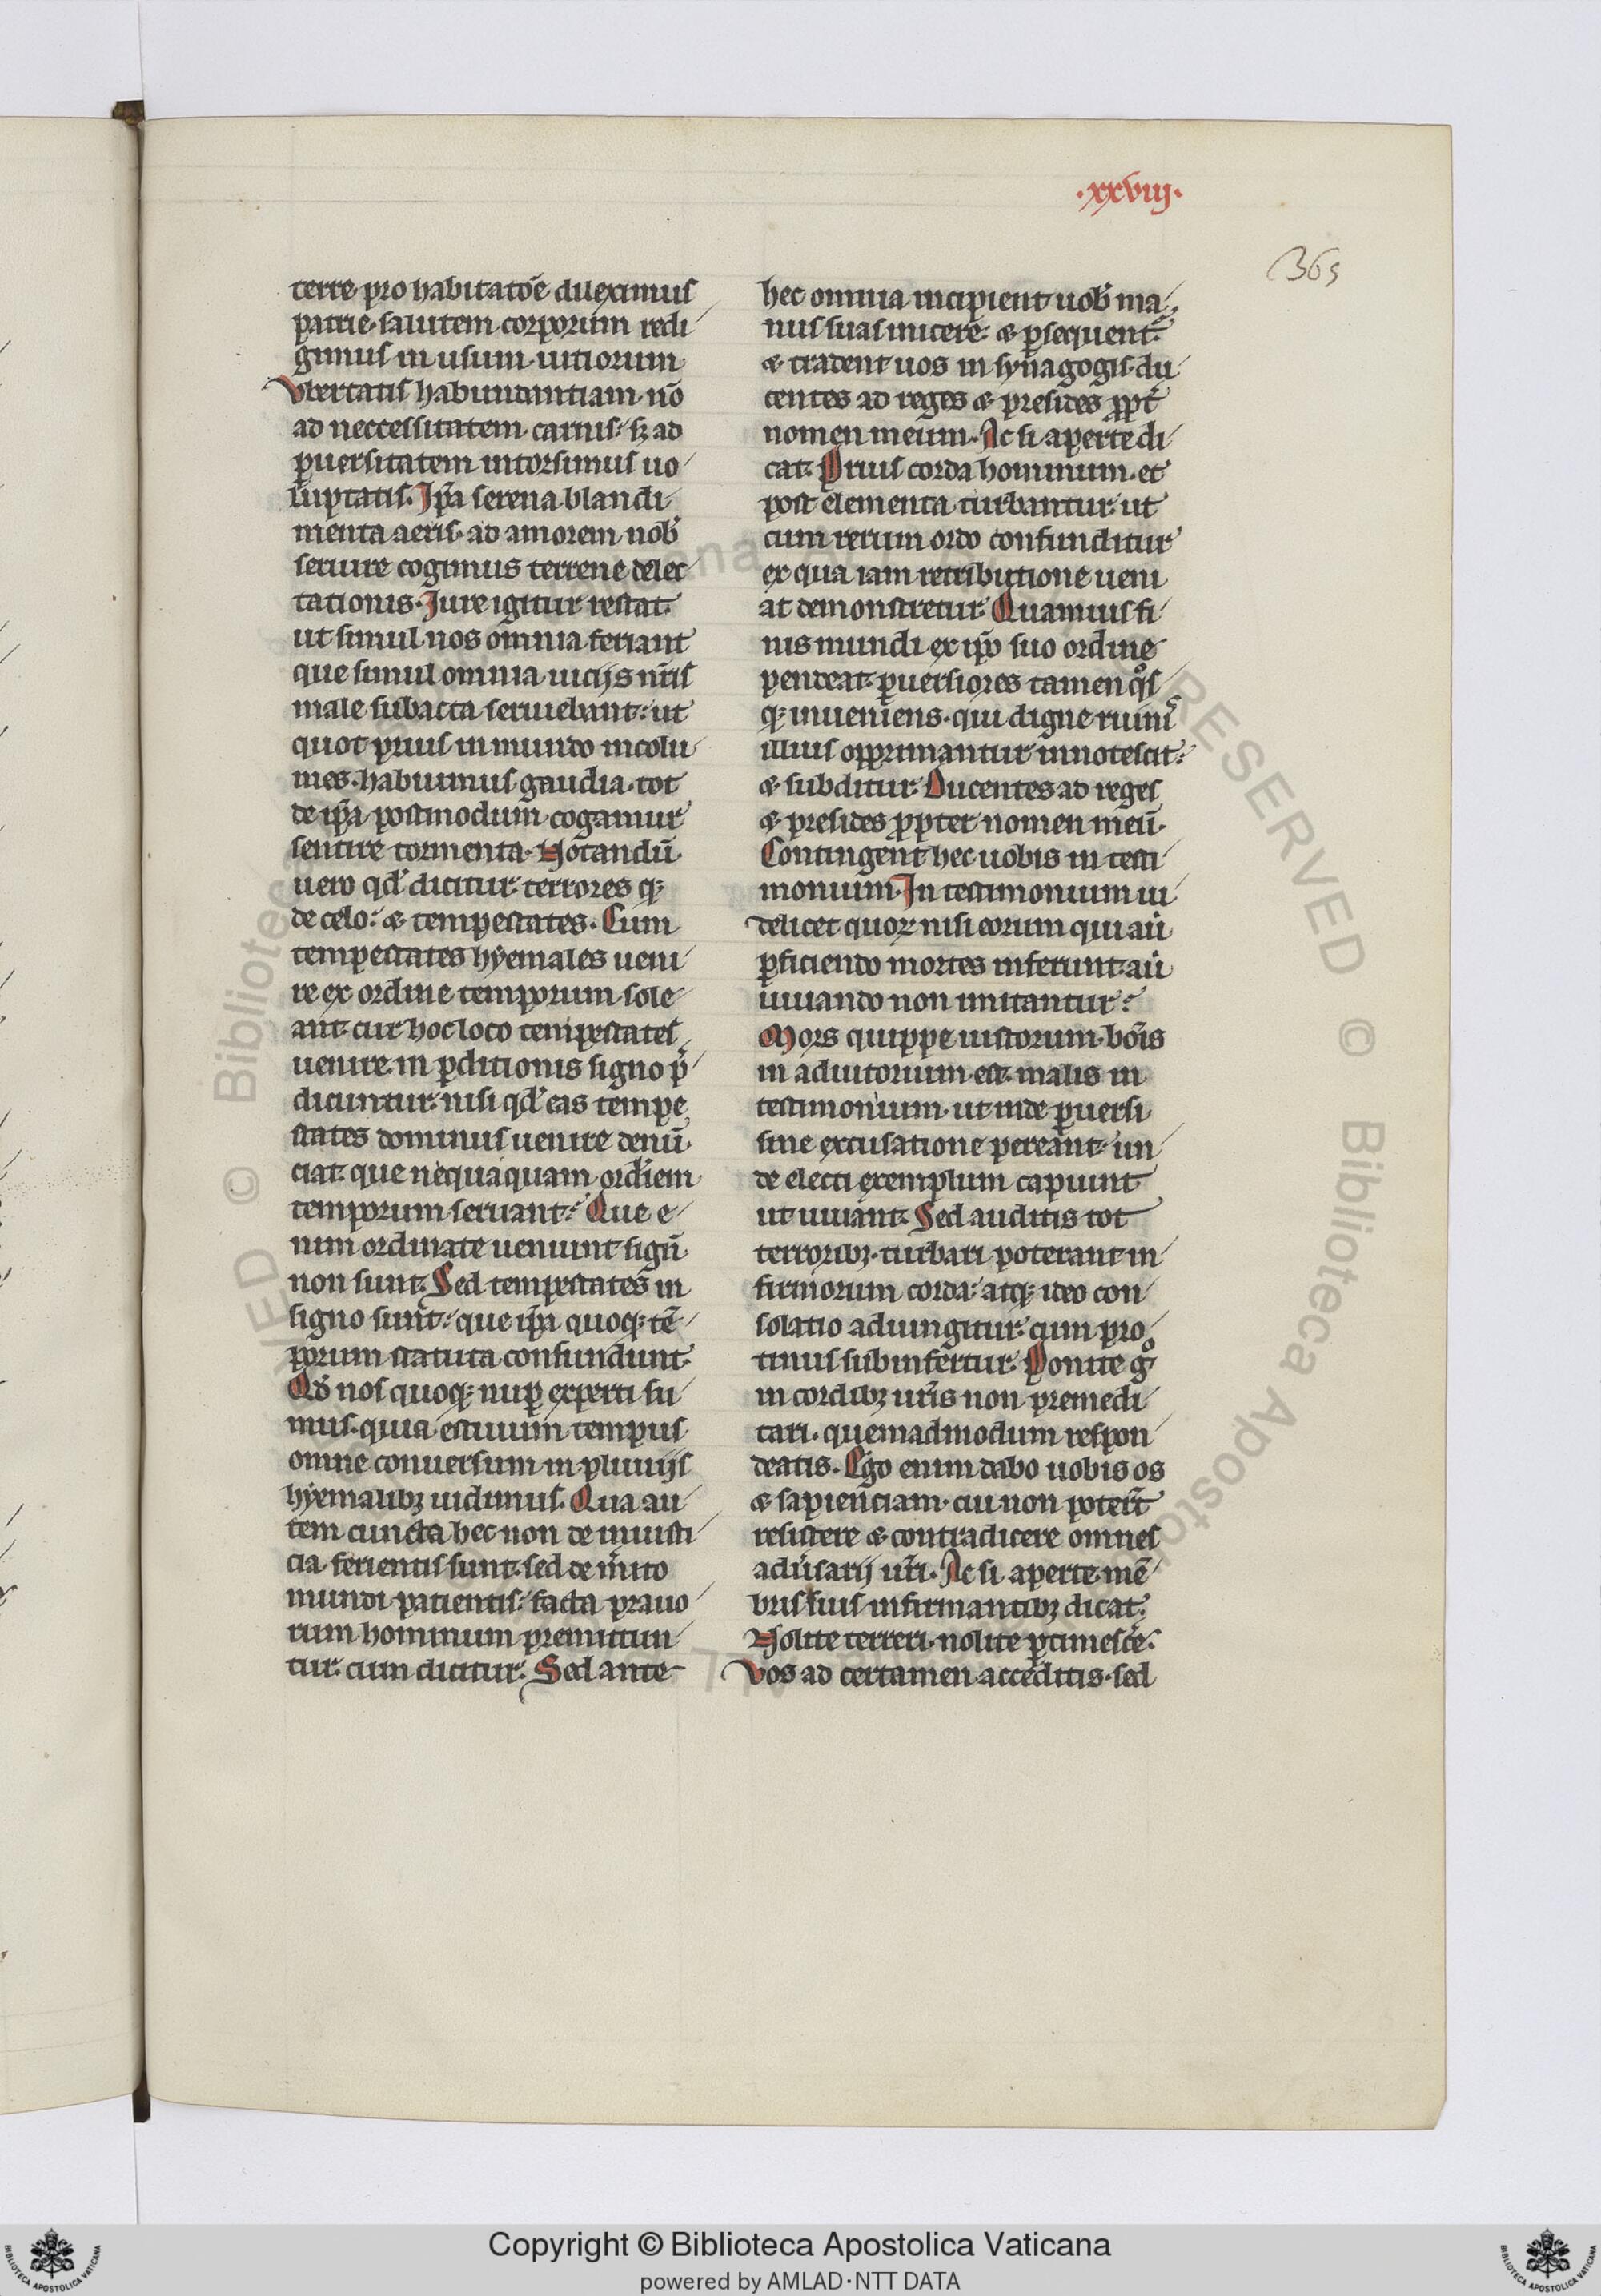 ·xxviij·
365
terre pro habitatōe dileximus
patrie· salutem corporum redi
gimus in usum uitiorum
Vbertatis habundantiam· nō
ad neccessitatem carnis: sꝫ ad
ꝑuersitatem intorsimus uo
luptatis. Ip̄a serena blandi
menta aeris· ad amorem nob̄
seruire cogimus terrene delec
tationis. Jure igitur restat
ut simul nos omnia feriant
que simul omnia uicijs nr̄is
male subacta seruiebant: ut
quot prius in mundo incolu
mes habuimus gaudia· tot
de ip̄a postmodum cogamur
sentire tormenta. Notandū
uero qd̓ dicitur. terrores qꝫ
de celo: & tempestates. Cum
tempestates hyemales ueni
re ex ordine temporum sole
ant: cur hoc loco tempestates
uenire in ꝑditionis signo p̄
dicuntur: nisi qd̓ eas tempe
states dominus uenire denū
ciat: que nequaquam ordinem
temporum seruant: Que e
nim ordinate ueniunt signū
non sunt. Sed tempestates in
signo sunt: que ip̄a quoqꝫ tē
porum statuta confundunt.
Qd̓ nos quoqꝫ nuꝑ experti su
mus· quia estiuum tempus
omne conuersum in pluuijs
hyemalibꝫ uidimus. Quia au
tem cuncta hec non de iniusti
cia ferientis sunt. sed de m̓ito
mundi patientis: facta prauo
rum hominum premittun
tur. cum dicitur. Sed ante
hec omnia incipient uob̄ ma
nus suas inicere: & ꝑsequent᷑
& tradent uos in synagogis· du
centes ad reges & presides ꝓpt̓
nomen meum. Ac si aperte di
cat. Prius corda hominum· et
post elementa turbantur: ut
cum rerum ordo confunditur
ex qua iam retributione ueni
at demonstretur. Quamuis fi
nis mundi ex ip̄o suo ordine
pendeat· ꝑuersiores tamen qͦs
qꝫ inueniens· qui digne ruina
illius opprimantur innotescit:
& subditur. Ducentes ad reges
& presides ꝓpter nomen meū.
Contingent hec uobis in testi
monium. In testimonium ui
delicet quoꝝ nisi eorum qui aū
ꝑficiendo mortes inferunt: aū
uiuando non imitantur:
Mors quippe iustorum· bōis
in adiutorium est· malis in
testimonium· ut inde ꝑuersi
sine excusatione pereant· un
de electi exemplum capiunt
ut uiuant. Sed auditis tot
terroribꝫ· turbari poterant in
firmorum corda: atqꝫ ideo con
solatio adiungitur: cum pro
tinus subinfertur. Ponite gͦ
in cordibꝫ ur̄is non premedi
tari· quemadmodum respon
deatis. Ego enim dabo uobis os
& sapienciam· cui non poterit
resistere & contradicere omnes
adūsarij ur̄i. Ac si aperte mē
bris suis infirmantibꝫ dicat.
Nolite terreri· nolite ꝑtimesc̓e:
Vos ad certamen acceditis· sed
Copyright © Biblioteca Apostolica Vaticana
powered by AMLAD·NTT DATA